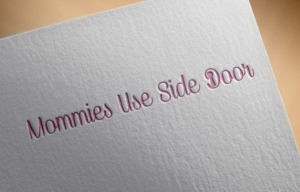 Mommies Use Side Door